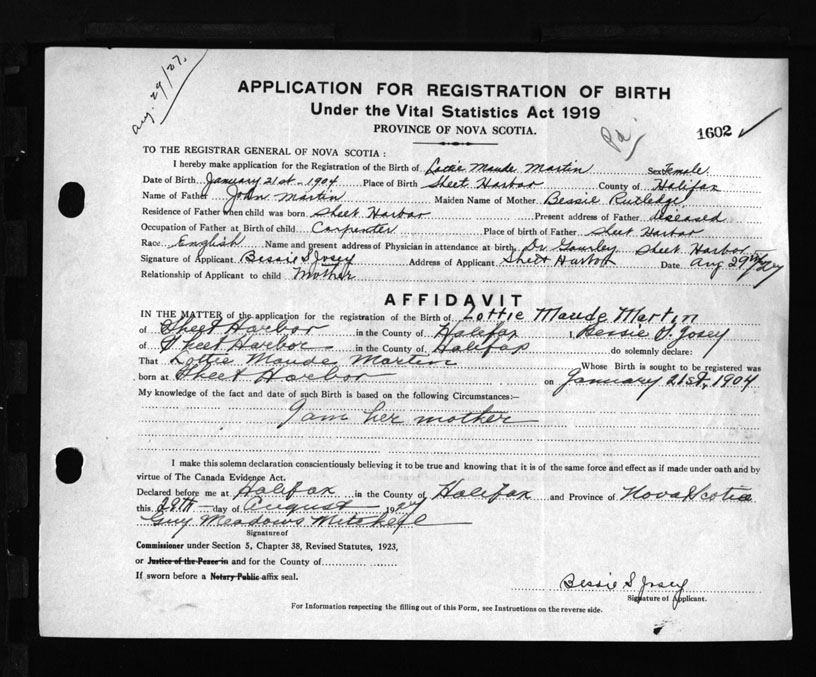 Aug. 29/27.
APPLICATION FOR REGISTRATION OF BIRTH
Under the Vital Statistics Act 1919
PROVINCE OF NOVA SCOTIA.
Pd.
1602 ✓
TO THE REGISTRAR GENERAL OF NOVA SCOTIA:
I hereby make application for the Registration of the Birth of Lottie Maude Martin Sex Female
Date of Birth January 21st - 1904 Place of Birth Sheet Harbor County of Halifax
Name of Father John Martin Maiden Name of Mother Bessie Rutledge
Residence of Father when child was born Sheet Harbor Present address of Father diseased
Occupation of Father at Birth of child Carpenter Place of birth of Father Sheet Harbor
Race English Name and present address of Physician in attendance at birth Dr Gourley Sheet Harbor
Signature of Applicant Bessie S Josey Address of Applicant Sheet Harbor Date Aug 29th/27
Relationship of Applicant to child Mother
AFFIDAVIT
IN THE MATTER of the application for the registration of the Birth of Lottie Maude Martin
of Sheet Harbor in the County of Halifax I, Bessie S. Josey
of Sheet Harbor in the County of Halifax do solemnly declare:
That Lottie Maude Martin Whose Birth is sought to be registered was
born at Sheet Harbor on January 21st, 1904
My knowledge of the fact and date of such Birth is based on the following Circumstances:-
I am her mother
I make this solemn declaration conscientiously believing it to be true and knowing that it is of the same force and effect as if made under oath and by
virtue of The Canada Evidence Act.
Declared before me at Halifax in the County of Halifax and Province of Nova Scotia
this 29th day of August 1927
Guy Meadows Mitchell
Signature of
Commissioner under Section 5, Chapter 38, Revised Statutes, 1923,
or Justice of the Peace in and for the County of
If sworn before a Notary Public affix seal.
Bessie S Josey
Signature of Applicant.
For Information respecting the filling out of this Form, see Instructions on the reverse side.